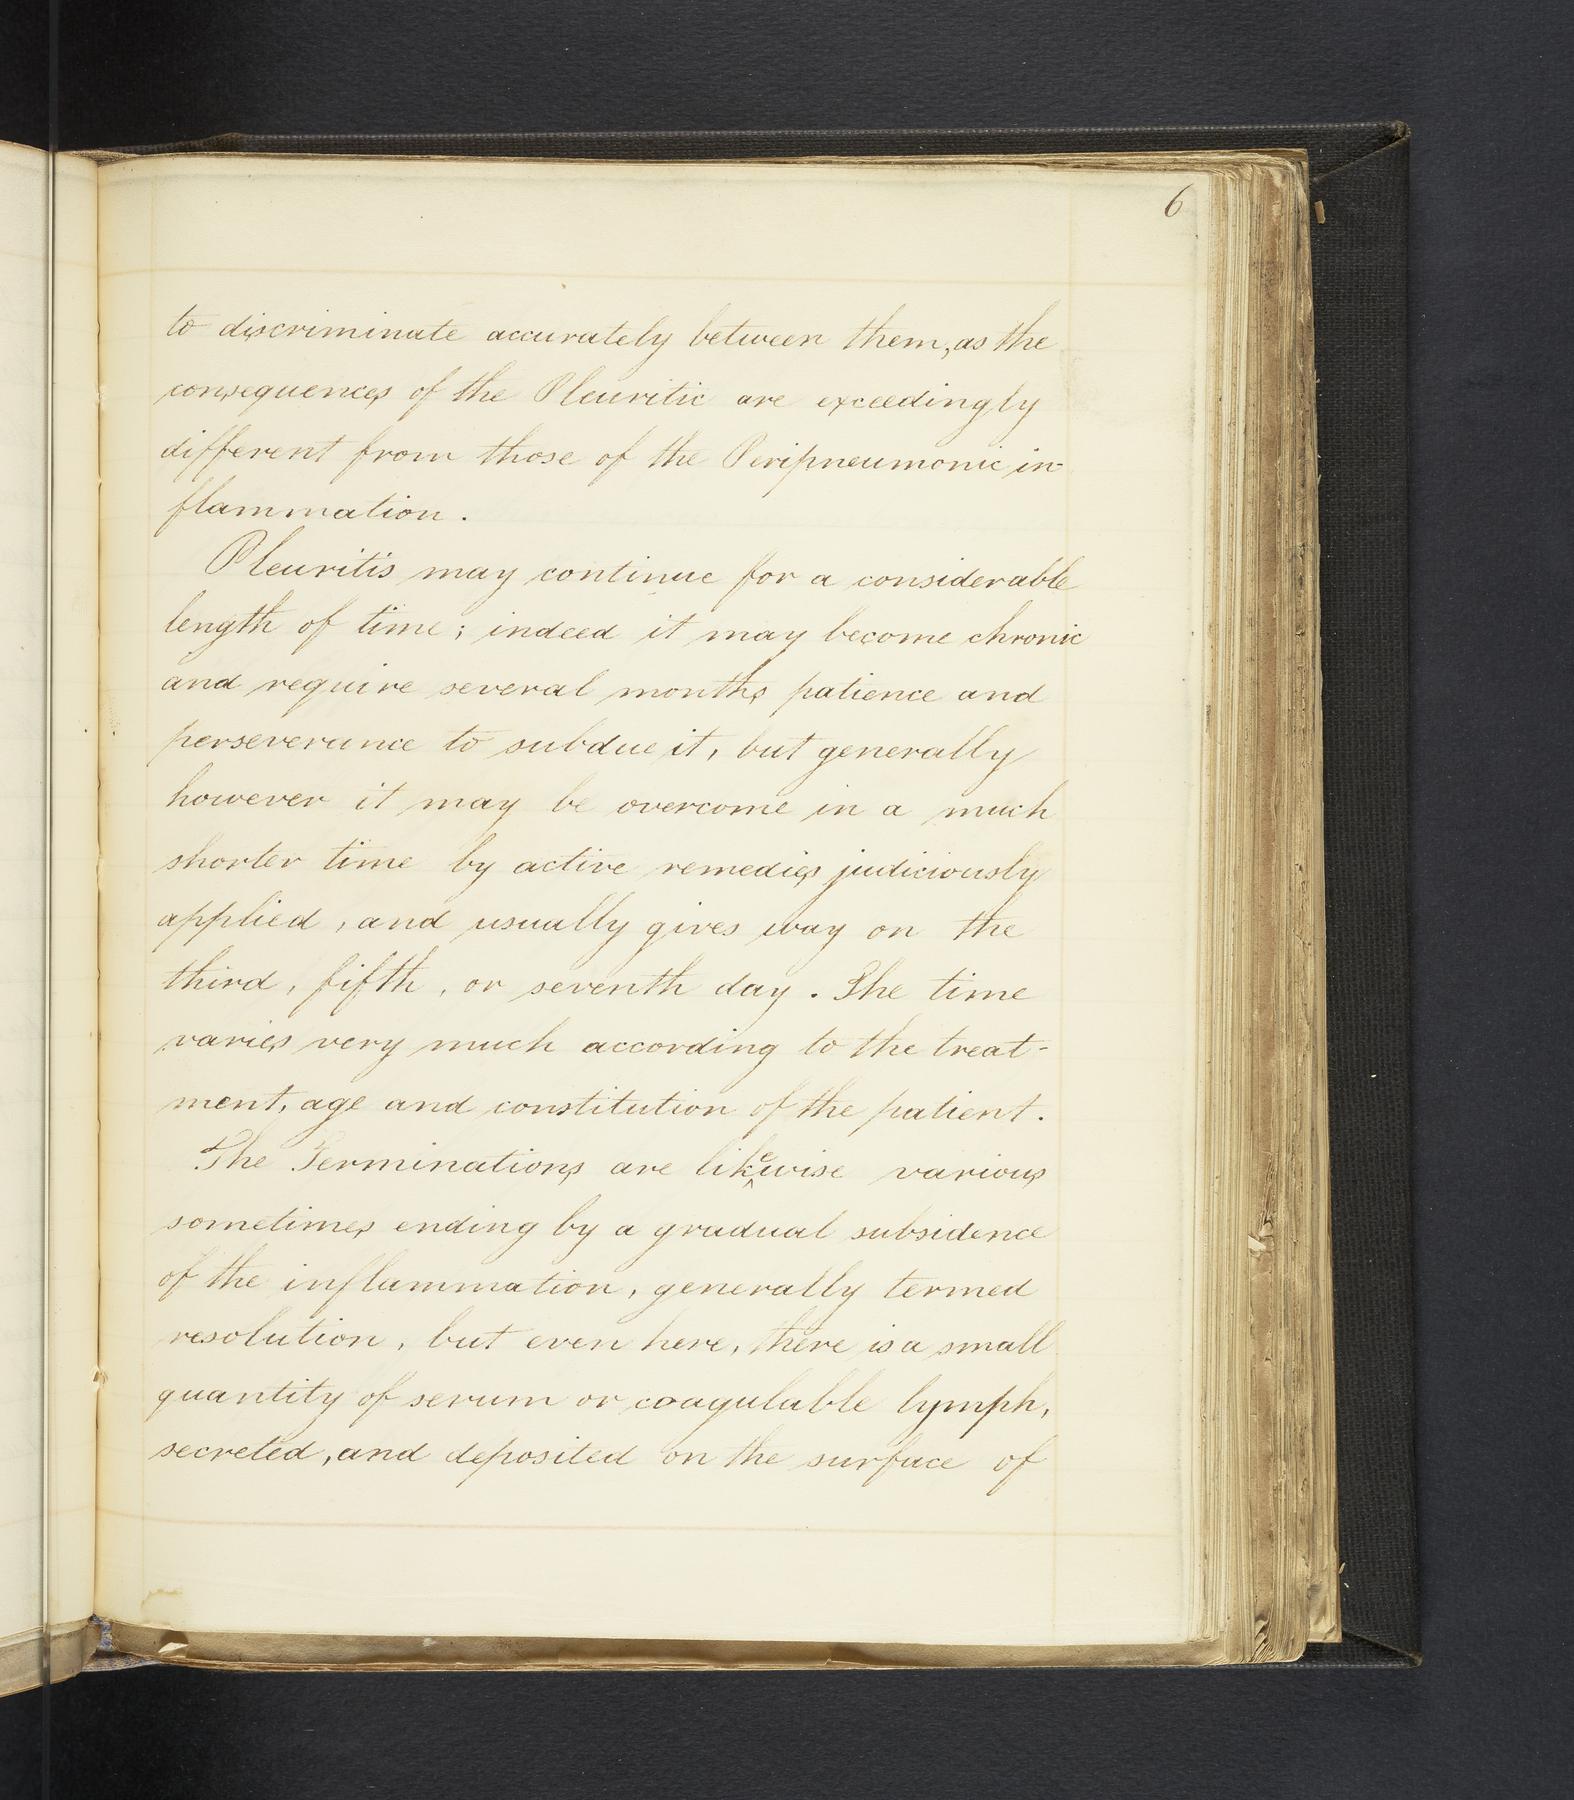 6
to discriminate accurately between them, as the
consequences of the Pleuritic are exceedingly
different from those of the Peripneumonic in-
flammation.
Pleuritis may continue for a considerable
length of time; indeed it may become chronic
and require several months patience and
perseverance to subdue it, but generally
however it may be overcome in a much
shorter time by active remedies judiciously
applied, and usually gives way on the
third, fifth, or seventh day. The time
varies very much according to the treat-
ment, age and constitution of the patient.
The Terminations are likewise various
sometimes ending by a gradual subsidence
of the inflammation, generally termed
resolution, but even here, there is a small
quantity of serum or coagulable lymph,
secreted, and deposited on the surface of